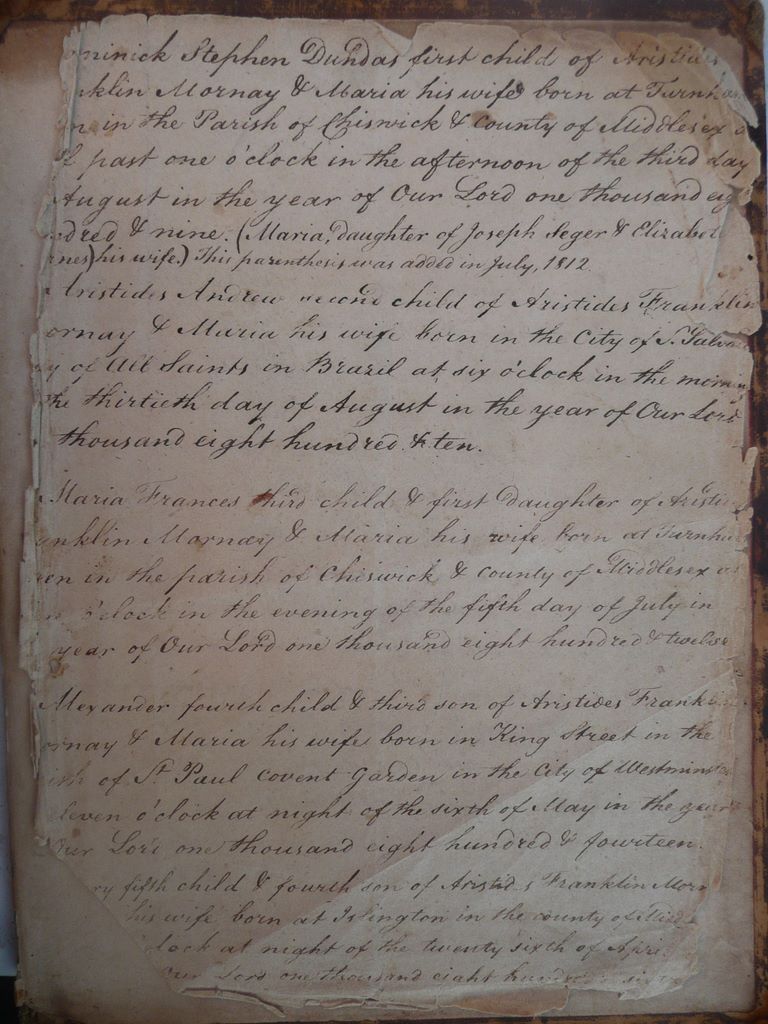 ominick Stephen Dundas first child of Aristides
nklin Mornay & Maria his wife born at Turnha
n in the Parish of Chiswick & County of Middlesex a
f past one o'clock in the afternoon of the third day
August in the year of Our Lord one thousand eig
ndred & nine. (Maria, daughter of Joseph Seger & Elizabet
rnes) his wife.) This parenthesis was added in July, 1812.
Aristides Andrew second child of Aristides Franklin
ornay & Maria his wife born in the City of S. Salva
y of All Saints in Brazil at six o'clock in the morning
the thirtieth day of August in the year of Our Lord
thousand eight hundred & ten.
Maria Frances third child & first daughter of Aristid
anklin Mornay & Maria his wife born at Turnha
en in the parish of Chiswick & County of Middlesex a
o'clock in the evening of the fifth day of July in
year of Our Lord one thousand eight hundred & twelve
Alexander fourth child & third son of Aristides Franklin
ornay & Maria his wife born in King Street in the
ish of St. Paul Covent Garden in the City of Westminst
eleven o'clock at night of the sixth of May in the year
Our Lord one thousand eight hundred & fourteen.
ry fifth child & fourth son of Aristides Franklin Morn
his wife born at Islington in the county of Midd
lock at night of the twenty sixth of Apri
Our Lord one thousand eight hundred & sixte